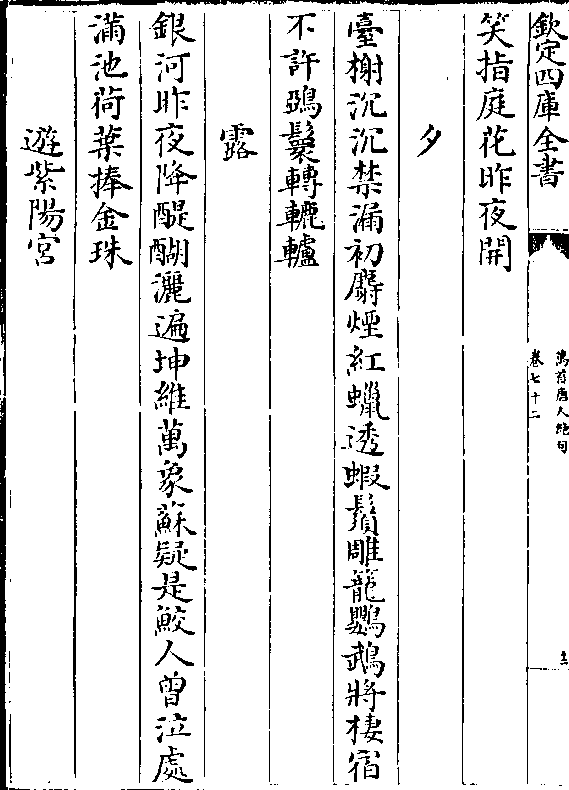 欽定四庫全書
萬首唐人絶句
卷七十二
笑指庭花昨夜開
夕
臺榭沉沉禁漏初麝煙紅蠟透蝦鬚雕籠鸚鵡將棲宿
不許鵶鬟轉轆轤
露
銀河昨夜降醍醐灑遍坤維萬象蘇疑是鮫人曾泣處
滿池荷葉捧金珠
遊紫陽宮